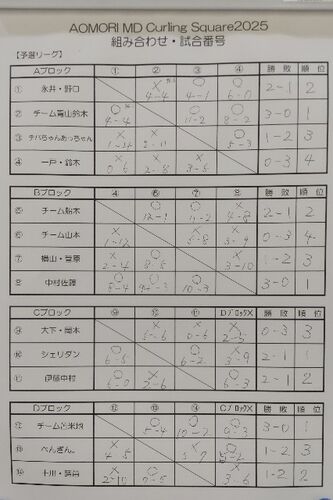 AOMORI MD Curling Square2025
組み合わせ・試合番号
【予選リーグ】
Aブロック ① ② ③ ④ 勝 敗 順 位
① 永井・野口 × 4-4 ○ 4-1 ○ 6-0 2-1 2
② チーム青山鈴木 ○ 4-4 ○ 11-2 ○ 8-2 3-0 1
③ チバちゃんあっちゃん × 1-4 × 2-11 ○ 5-3 1-2 3
④ 一戸・鈴木 × 0-6 × 2-8 × 3-5 0-3 4
Bブロック ⑤ ⑥ ⑦ ⑧ 勝 敗 順 位
⑤ チーム船木 ○ 12-1 ○ 11-2 × 4-8 2-1 2
⑥ チーム山本 × 1-12 × 5-8 × 3-9 0-3 4
⑦ 横山・菅原 ○ 8-5 × 3-10 1-2 3
⑧ 中村佐藤 ○ 8-4 ○ ○ 10-3 3-0 1
Cブロック ⑨ ⑩ ⑪ Dブロックx 勝 敗 順 位
⑨ 大下・岡本 × × × 0-3 3
⑩ シェリダン ○ ○ 6-2 × 3-9 2-1 1
⑪ 伊藤中村 ○ × 2-6 ○ 2-1 2
Dブロック ⑫ ⑬ ⑭ Cブロックx 勝 敗 順 位
⑫ チーム ○ 5-4 ○ 10-2 ○ 3-0 1
⑬ ぺんぎん。 × 4-5 × ○ 1-2 3
⑭ × 2-10 ○ × 3-6 1-2 2